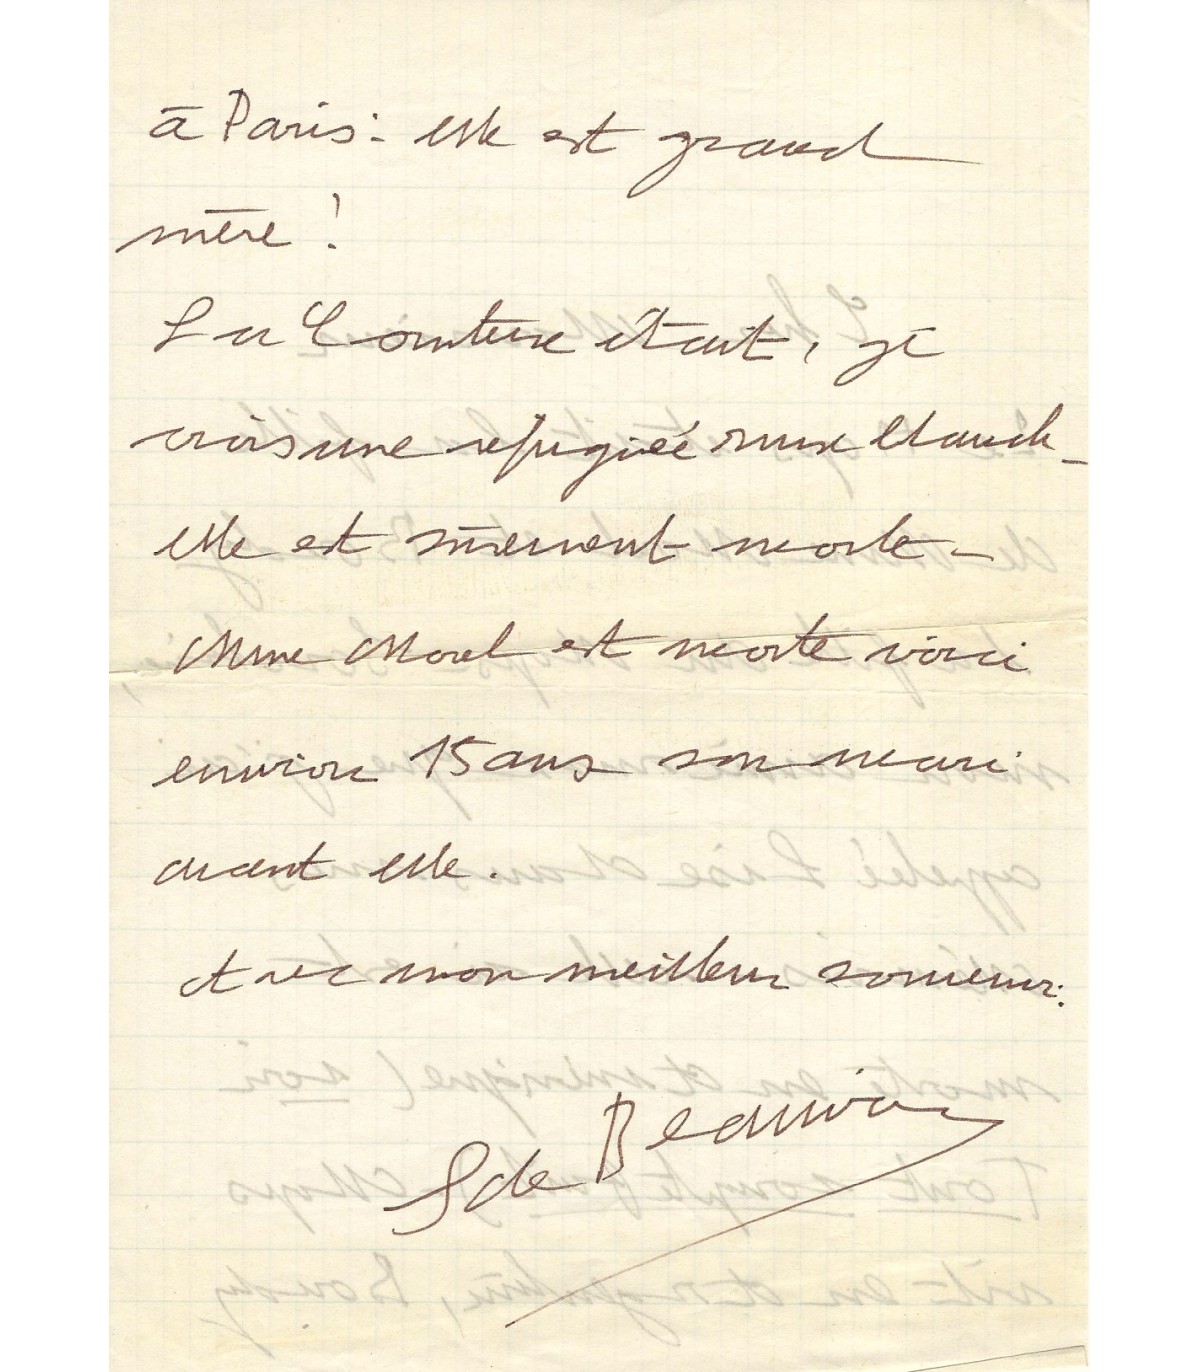 à Paris - elle est grand
mère !
La Comtesse était, je
crois une réfugiée russe blanche -
elle est sûrement morte -
Mme Morel est morte voici
environ 15 ans son mari
avant elle.
Avec mon meilleur souvenir.
S de Beauvoir